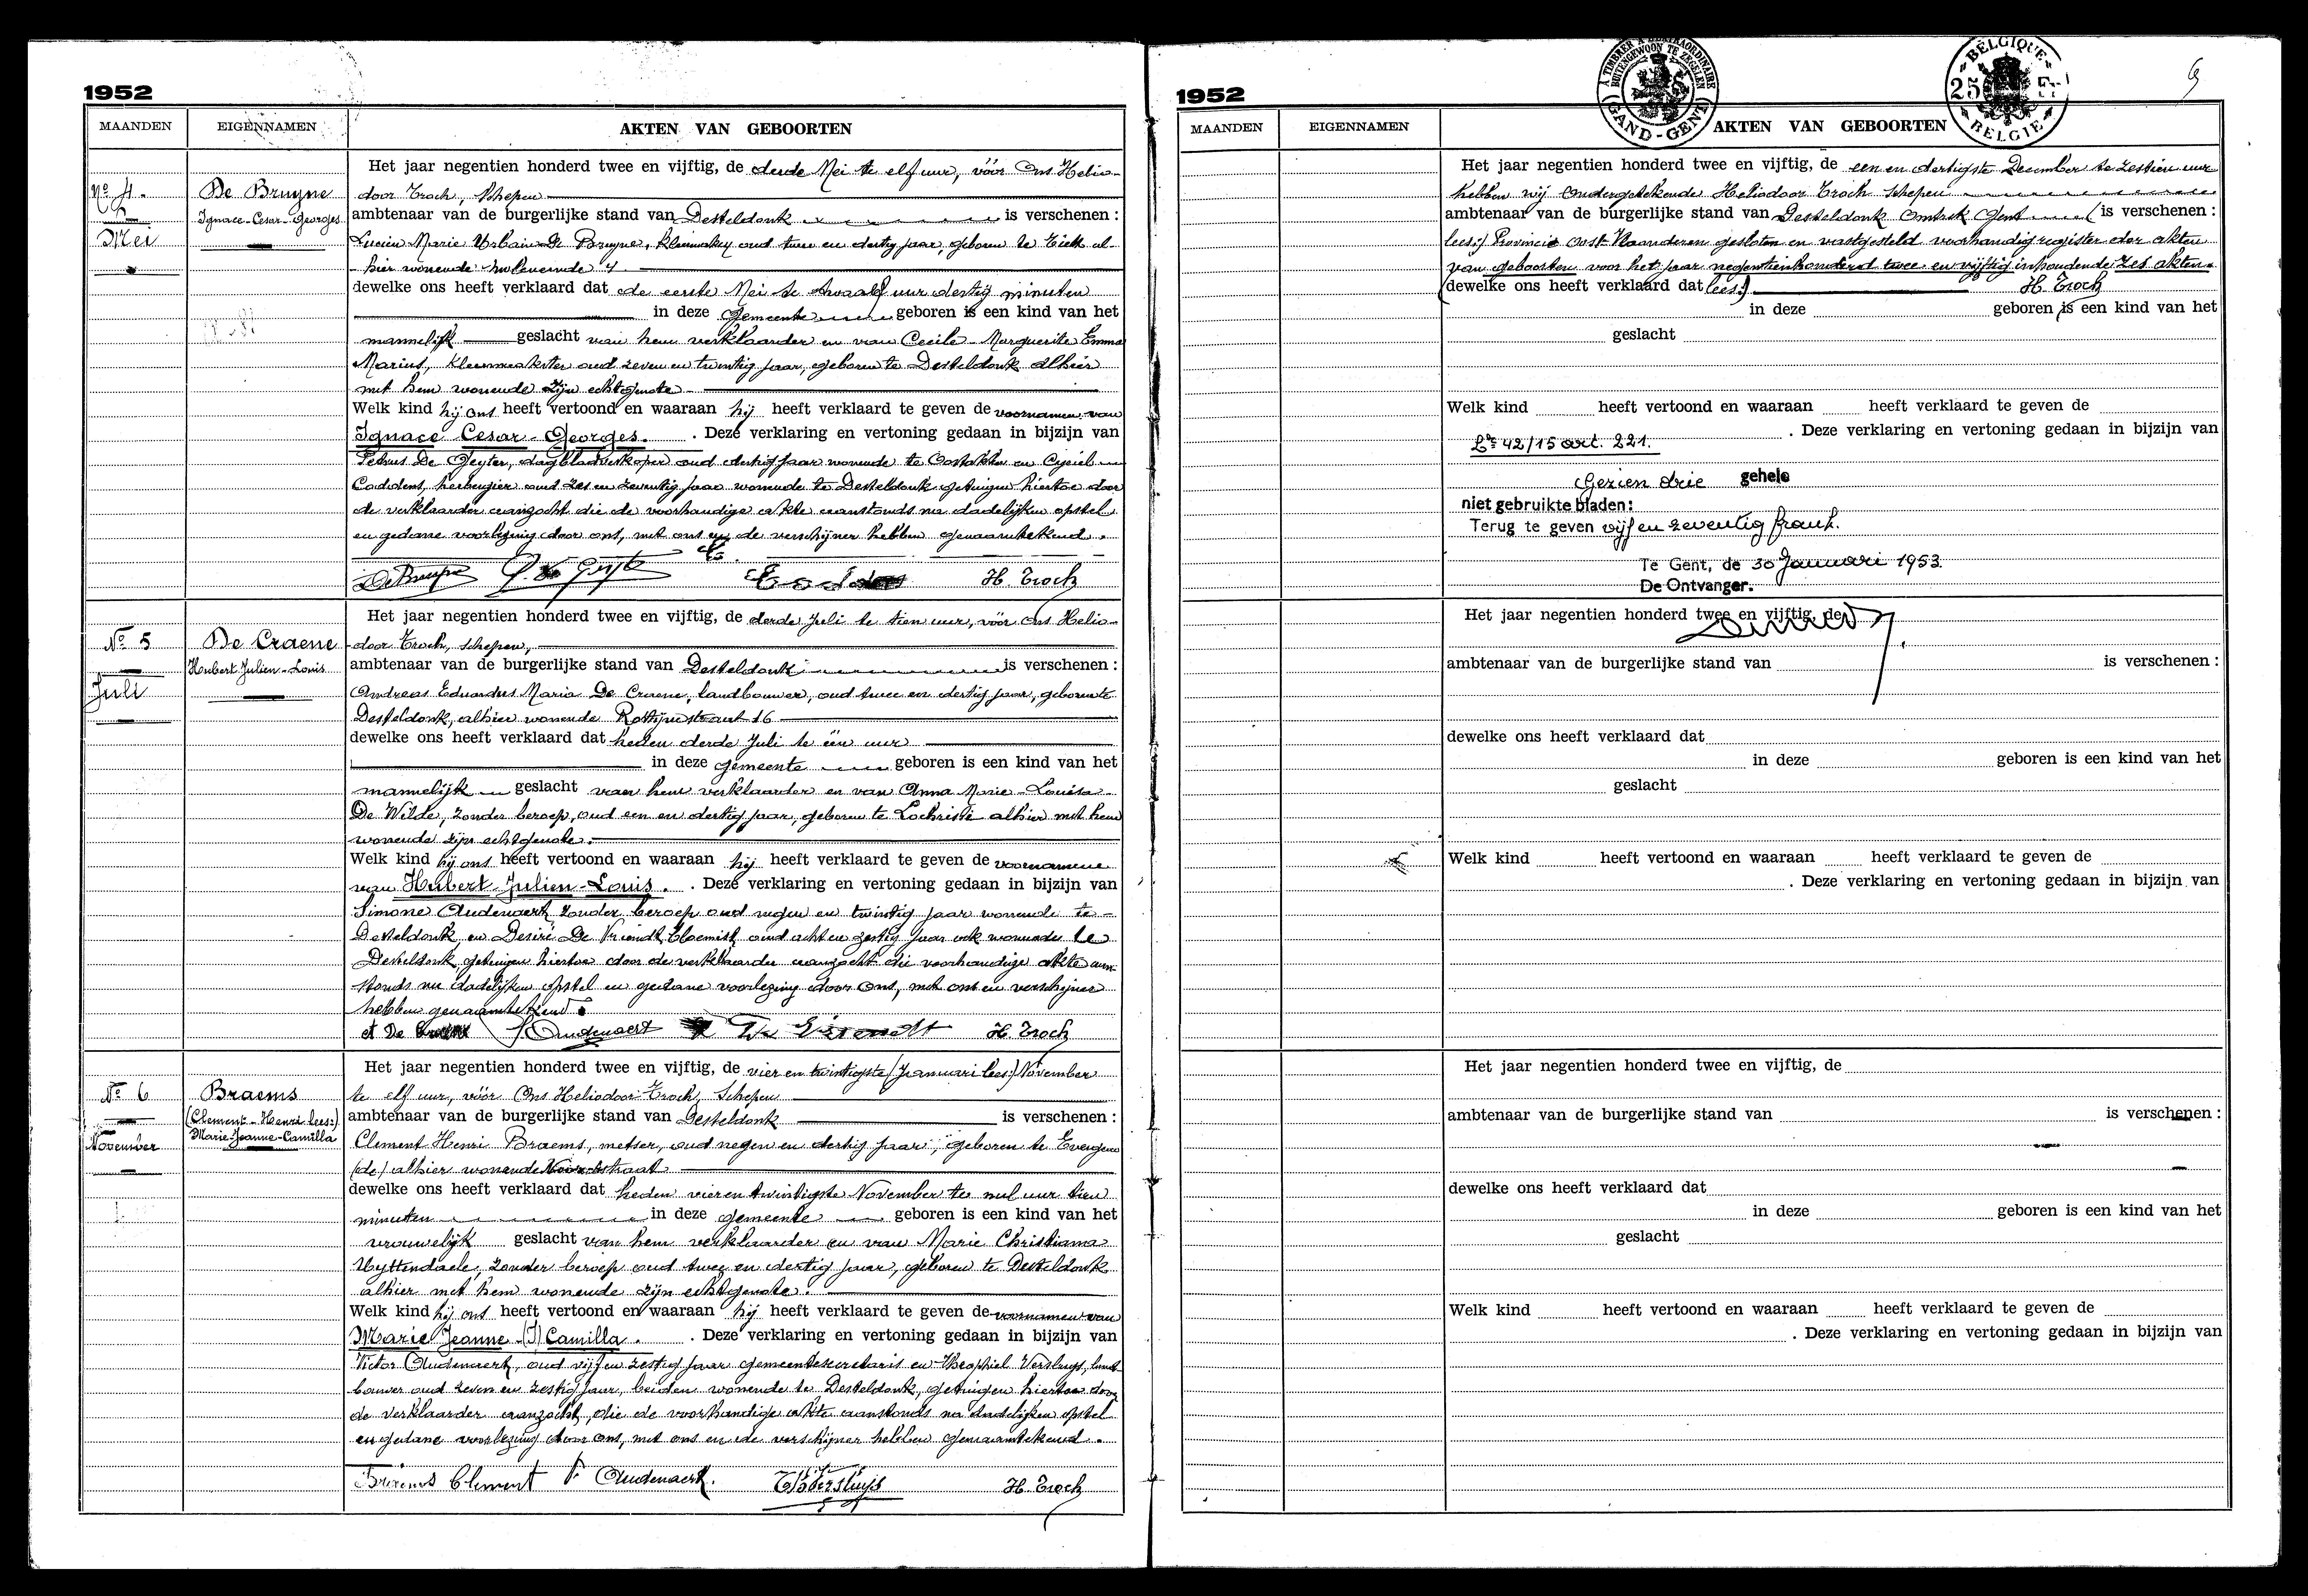 1952
MAANDEN EIGENNAMEN AKTEN VAN GEBOORTEN
Het jaar negentien honderd twee en vijftig, de derde Mei te elf uur, vóór Ons Helio-
No 4. De Bruyne door Troch, Schepen
Ignace-Cesar-Georges ambtenaar van de burgerlijke stand van Desteldonk is verschenen :
Mei Lucien Marie Urbain De Bruyne, oud twee en dertig jaar, geboren te al-
hier wonende 4
dewelke ons heeft verklaard dat de eerste Mei te twaalf uur dertig minuten
in deze gemeente geboren is een kind van het
mannelijk geslacht van hem verklaarder en van Cecile-Marguerite Emma
Marius, kleermaakster oud zeven en twintig jaar, geboren te Desteldonk alhier
met hem wonende zijn echtgenote
Welk kind hij ons heeft vertoond en waaraan hij heeft verklaard te geven de voornamen van
Ignace Cesar-Georges. . Deze verklaring en vertoning gedaan in bijzijn van
Petrus De Geyter, dagbladverkoper oud dertig jaar wonende te Oostakker en Cyriel
herbergier oud zes en zeventig jaar wonende te Desteldonk getuigen hiertoe door
de verklaarder aanzocht die de voorhandige akte aanstonds na dadelijken opstel
en gedane voorlezing door ons, met ons en de verschijner hebben genaamtekend.
H. Troch
Het jaar negentien honderd twee en vijftig, de derde Juli te tien uur, vóór Ons Helio-
No 5 De Craene door Troch, schepen,
Hubert Julien-Louis ambtenaar van de burgerlijke stand van Desteldonk is verschenen :
Juli Andreas Eduardus Maria De Craene, landbouwer, oud twee en dertig jaar, geboren te
Desteldonk, alhier wonende 16
dewelke ons heeft verklaard dat heden derde Juli te één uur
in deze gemeente geboren is een kind van het
mannelijk geslacht van hem verklaarder en van Anna Marie-Louisa
De Wilde, zonder beroep, oud een en dertig jaar, geboren te Lochristi alhier met hem
wonende zijn echtgenote.
Welk kind hij ons heeft vertoond en waaraan hij heeft verklaard te geven de voornamen
van Hubert-Julien-Louis. . Deze verklaring en vertoning gedaan in bijzijn van
Simone Audenaert, zonder beroep oud negen en twintig jaar wonende te
Desteldonk en Desiré De Vriendt, bloemist, oud acht en zestig jaar ook wonende te
Desteldonk, getuigen hiertoe door de verklaarder aanzocht die voorhandige akte aan-
stonds na dadelijken opstel en gedane voorlezing door Ons, met ons en verschijner
hebben genaamtekend.
S. Oudenaert De Vriendt H. Troch
Het jaar negentien honderd twee en vijftig, de vier en twintigste (Januari lees:) November
No 6 Braems te elf uur, vóór Ons Heliodoor Troch, Schepen
(Clement-Henri lees:) ambtenaar van de burgerlijke stand van Desteldonk is verschenen :
November Marie-Jeanne-Camilla Clement Henri Braems, metser, oud negen en dertig jaar, geboren te Evergem
(de) alhier wonende
dewelke ons heeft verklaard dat heden vier en twintigste November te nul uur tien
minuten in deze gemeente geboren is een kind van het
vrouwelijk geslacht van hem verklaarder en van Marie Christiana
Uyttendaele, zonder beroep oud twee en dertig jaar, geboren te Desteldonk
alhier met hem wonende zijn echtgenote.
Welk kind hij ons heeft vertoond en waaraan hij heeft verklaard te geven de voornamen van
Marie Jeanne-(J) Camilla. . Deze verklaring en vertoning gedaan in bijzijn van
Victor Oudenaert, oud vijf en zestig jaar gemeentesecretaris en Theophiel Versluys, land-
bouwer oud zeven en zestig jaar, beiden wonende te Desteldonk, getuigen hiertoe door
de verklaarder aanzocht, die de voorhandige akte aanstonds na dadelijken opstel
en gedane voorlezing door ons, met ons en de verschijner hebben genaamtekend.
Braems Clement V. Oudenaert. Th Versluys H. Troch
À TIMBRER À L'EXTRAORDINAIRE
BUITENGEWOON TE ZEGELEN
GAND-GENT
BELGIQUE
25
BELGIE
1952
MAANDEN EIGENNAMEN AKTEN VAN GEBOORTEN
Het jaar negentien honderd twee en vijftig, de een en dertigste December te zestien uur
hebben wij Ondergetekende Heliodoor Troch Schepen
ambtenaar van de burgerlijke stand van Desteldonk Omtrek Gent (is verschenen :
lees:) Provincie Oost-Vlaanderen gesloten en vastgesteld voorhandig register der akten
van geboorten voor het jaar negentienhonderd twee en vijftig inhoudende zes akten.
(dewelke ons heeft verklaard dat lees:) H. Troch
in deze geboren is een kind van het
geslacht
Welk kind heeft vertoond en waaraan heeft verklaard te geven de
. Deze verklaring en vertoning gedaan in bijzijn van
42/15 art. 221.
Gezien drie gehele
niet gebruikte bladen:
Terug te geven vijf en zeventig frank.
Te Gent, de 30 Januari 1953.
De Ontvanger.
Het jaar negentien honderd twee en vijftig, de
ambtenaar van de burgerlijke stand van is verschenen :
dewelke ons heeft verklaard dat
in deze geboren is een kind van het
geslacht
Welk kind heeft vertoond en waaraan heeft verklaard te geven de
. Deze verklaring en vertoning gedaan in bijzijn van
Het jaar negentien honderd twee en vijftig, de
ambtenaar van de burgerlijke stand van is verschenen :
dewelke ons heeft verklaard dat
in deze geboren is een kind van het
geslacht
Welk kind heeft vertoond en waaraan heeft verklaard te geven de
. Deze verklaring en vertoning gedaan in bijzijn van